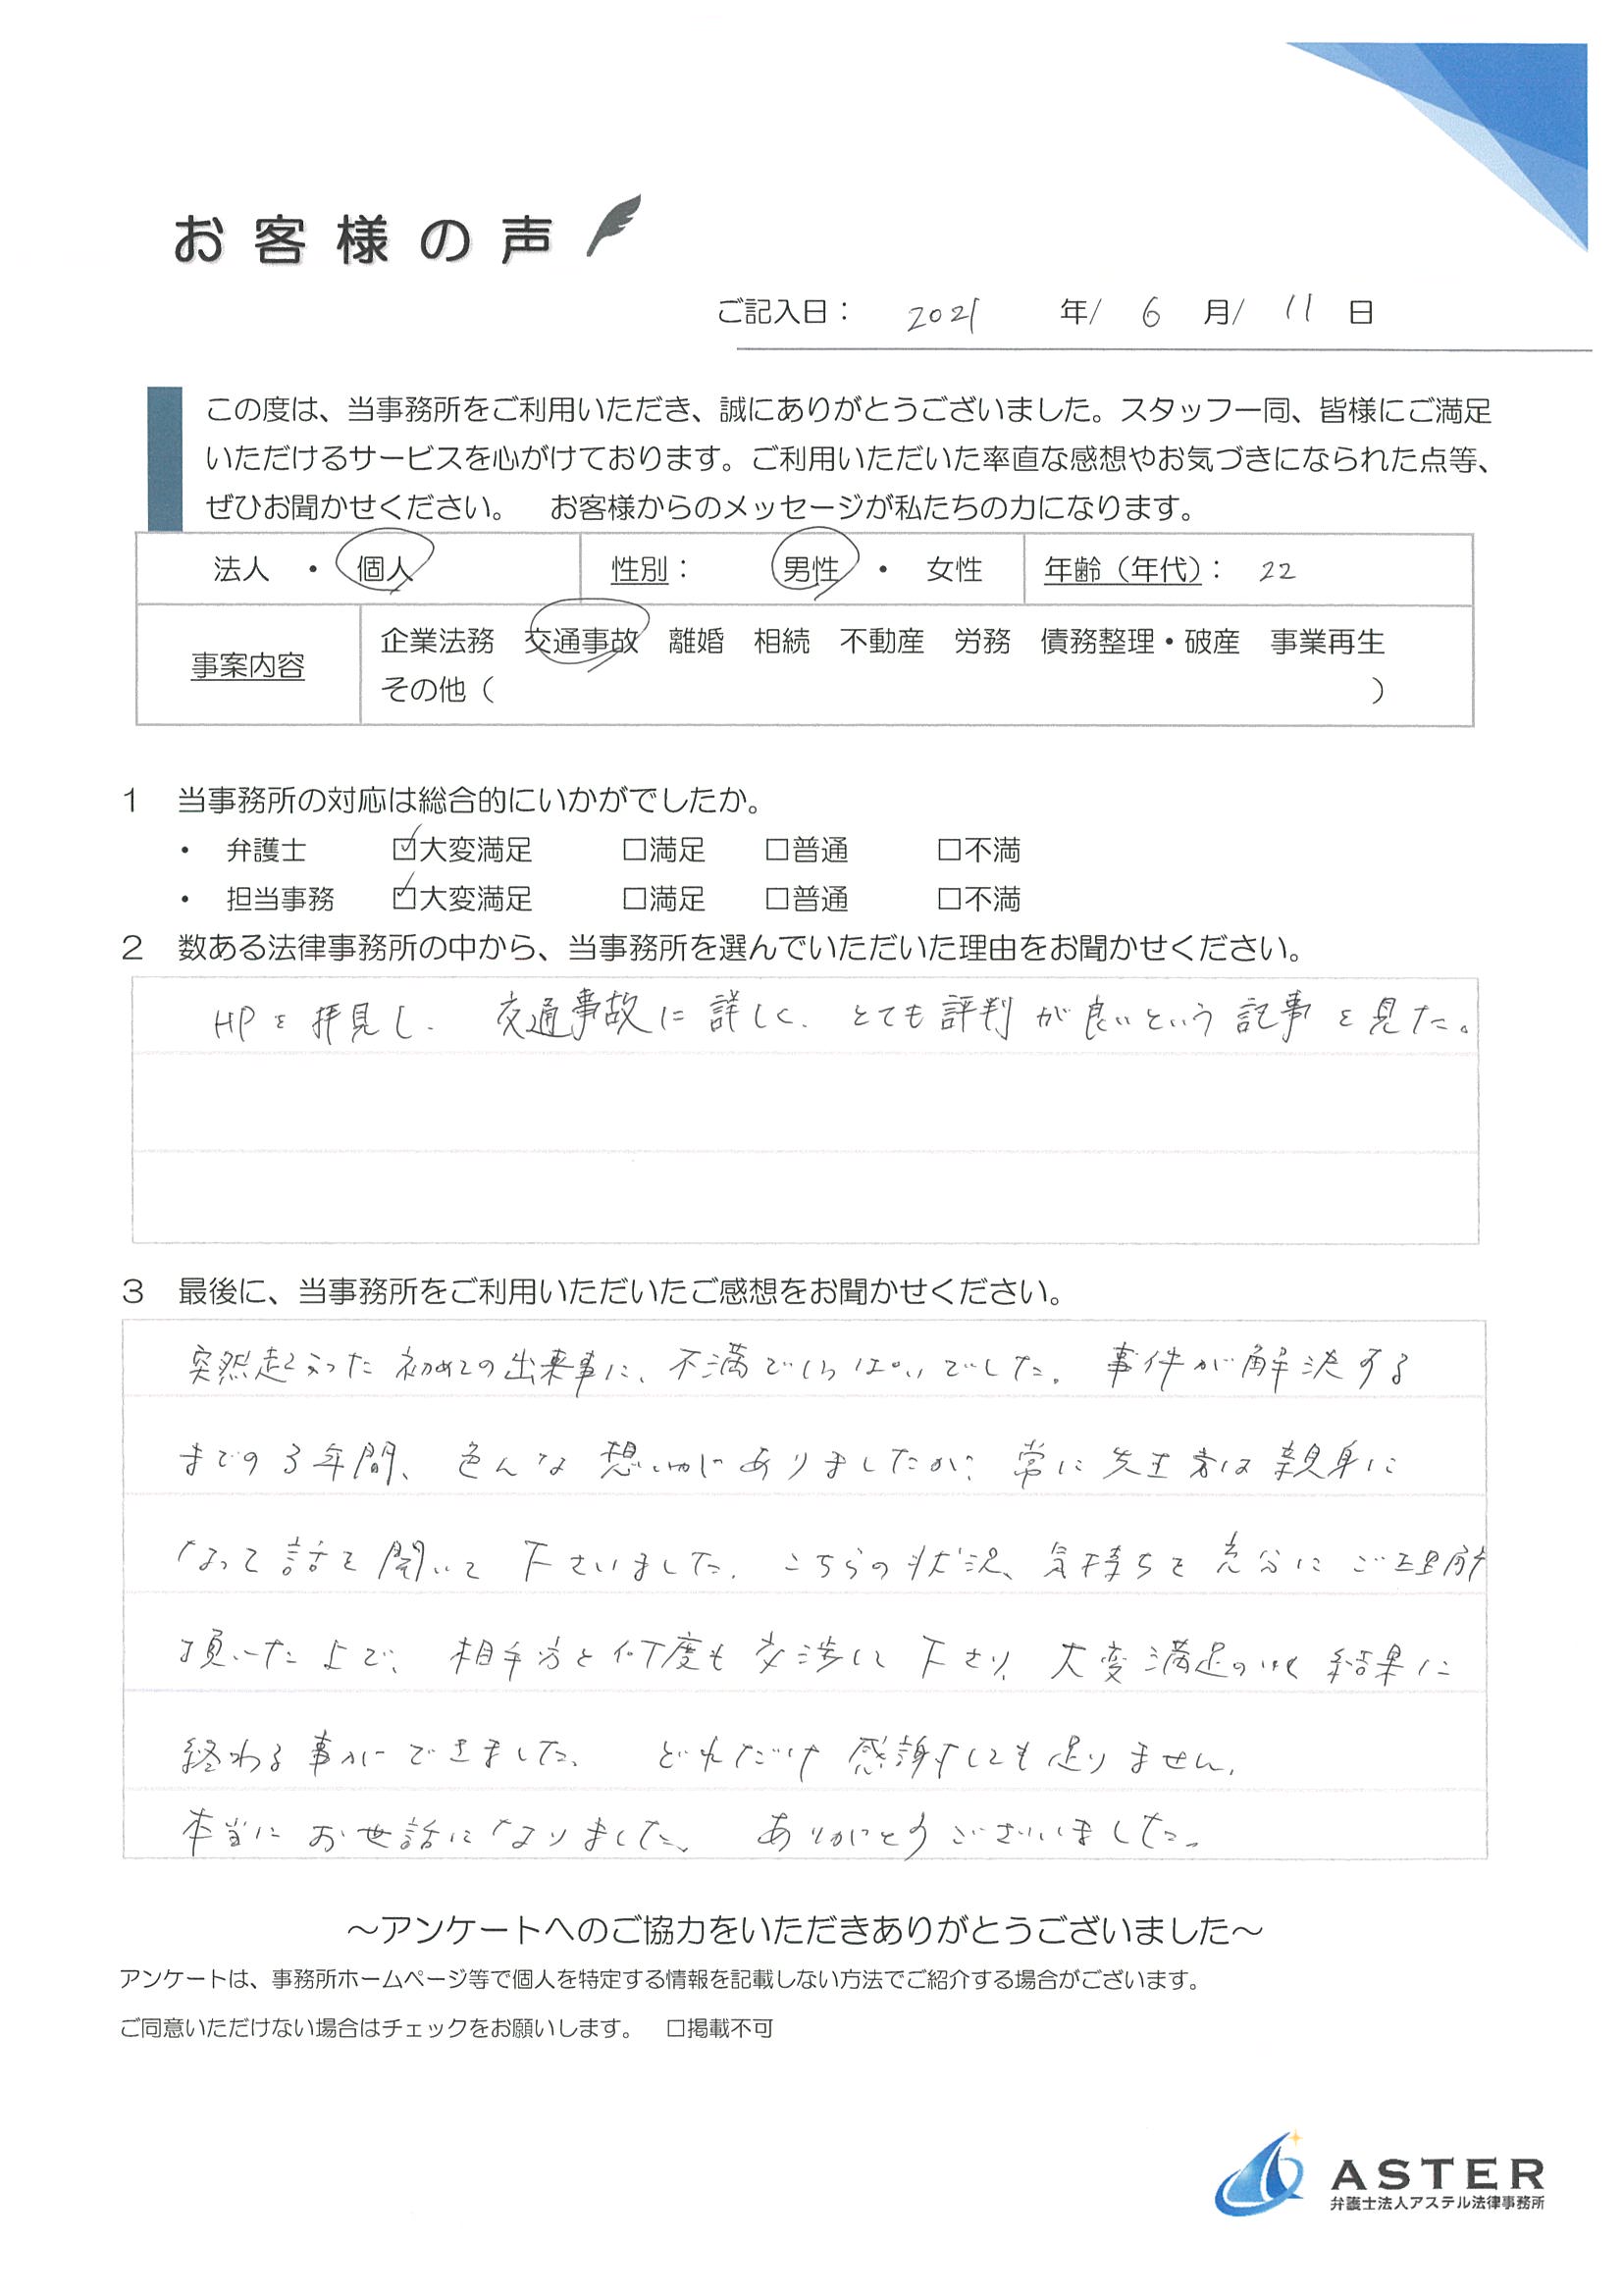 お客様の声
ご記入日： 2021 年/ 6 月/ 11 日
この度は、当事務所をご利用いただき、誠にありがとうございました。スタッフ一同、皆様にご満足
いただけるサービスを心がけております。ご利用いただいた率直な感想やお気づきになられた点等、
ぜひお聞かせください。　お客様からのメッセージが私たちの力になります。
法人 ・ 個人 性別： 男性 ・ 女性 年齢（年代）： 22
企業法務 交通事故 離婚 相続 不動産 労務 債務整理・破産 事業再生
事案内容
その他（ ）
1 当事務所の対応は総合的にいかがでしたか。
・ 弁護士 ☑大変満足 □満足 □普通 □不満
・ 担当事務 ☑大変満足 □満足 □普通 □不満
2 数ある法律事務所の中から、当事務所を選んでいただいた理由をお聞かせください。
HPを拝見し、交通事故に詳しく、とても評判が良いという記事を見た。
3 最後に、当事務所をご利用いただいたご感想をお聞かせください。
突然起こった初めての出来事に、不満でいっぱいでした。事件が解決する
までの3年間、色んな想いがありましたが、常に先生方は親身に
なって話を聞いて下さいました。こちらの状況、気持ちを充分にご理解
頂いた上で、相手方と何度も交渉して下さり、大変満足のいく結果に
終わる事ができました。どれだけ感謝しても足りません。
本当にお世話になりました。ありがとうございました。
～アンケートへのご協力をいただきありがとうございました～
アンケートは、事務所ホームページ等で個人を特定する情報を記載しない方法でご紹介する場合がございます。
ご同意いただけない場合はチェックをお願いします。　□掲載不可
ASTER
弁護士法人アステル法律事務所